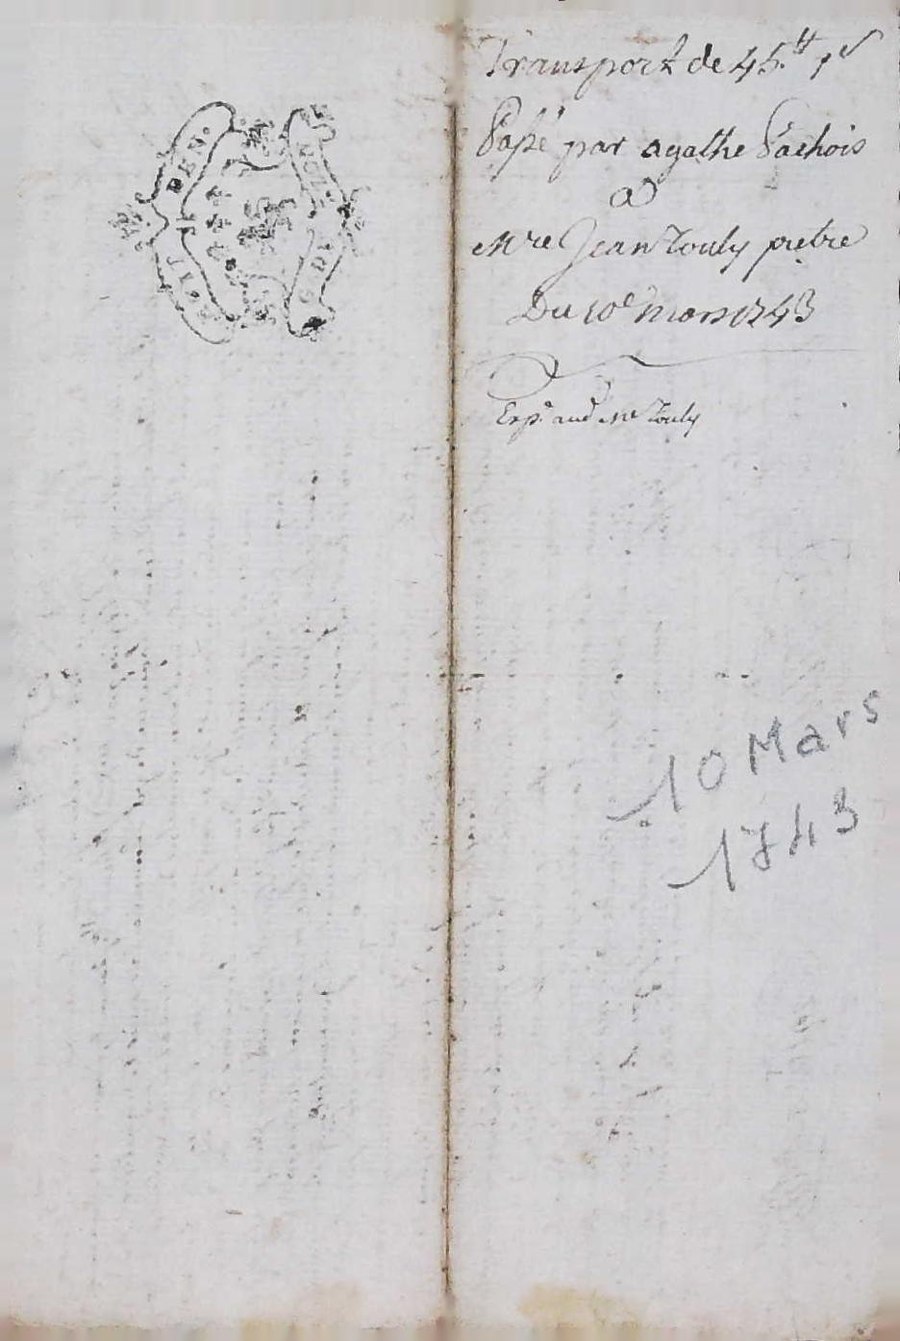 Transport de 45.ᵗᵗ 1ˢ
Passé par agathe Pachois
a
Mʳᵉ Jean Touly prêtre
Du 10ᵉ mars 1743
Expᵉ aud Mʳᵉ Touly
10 Mars
1743
DEN.